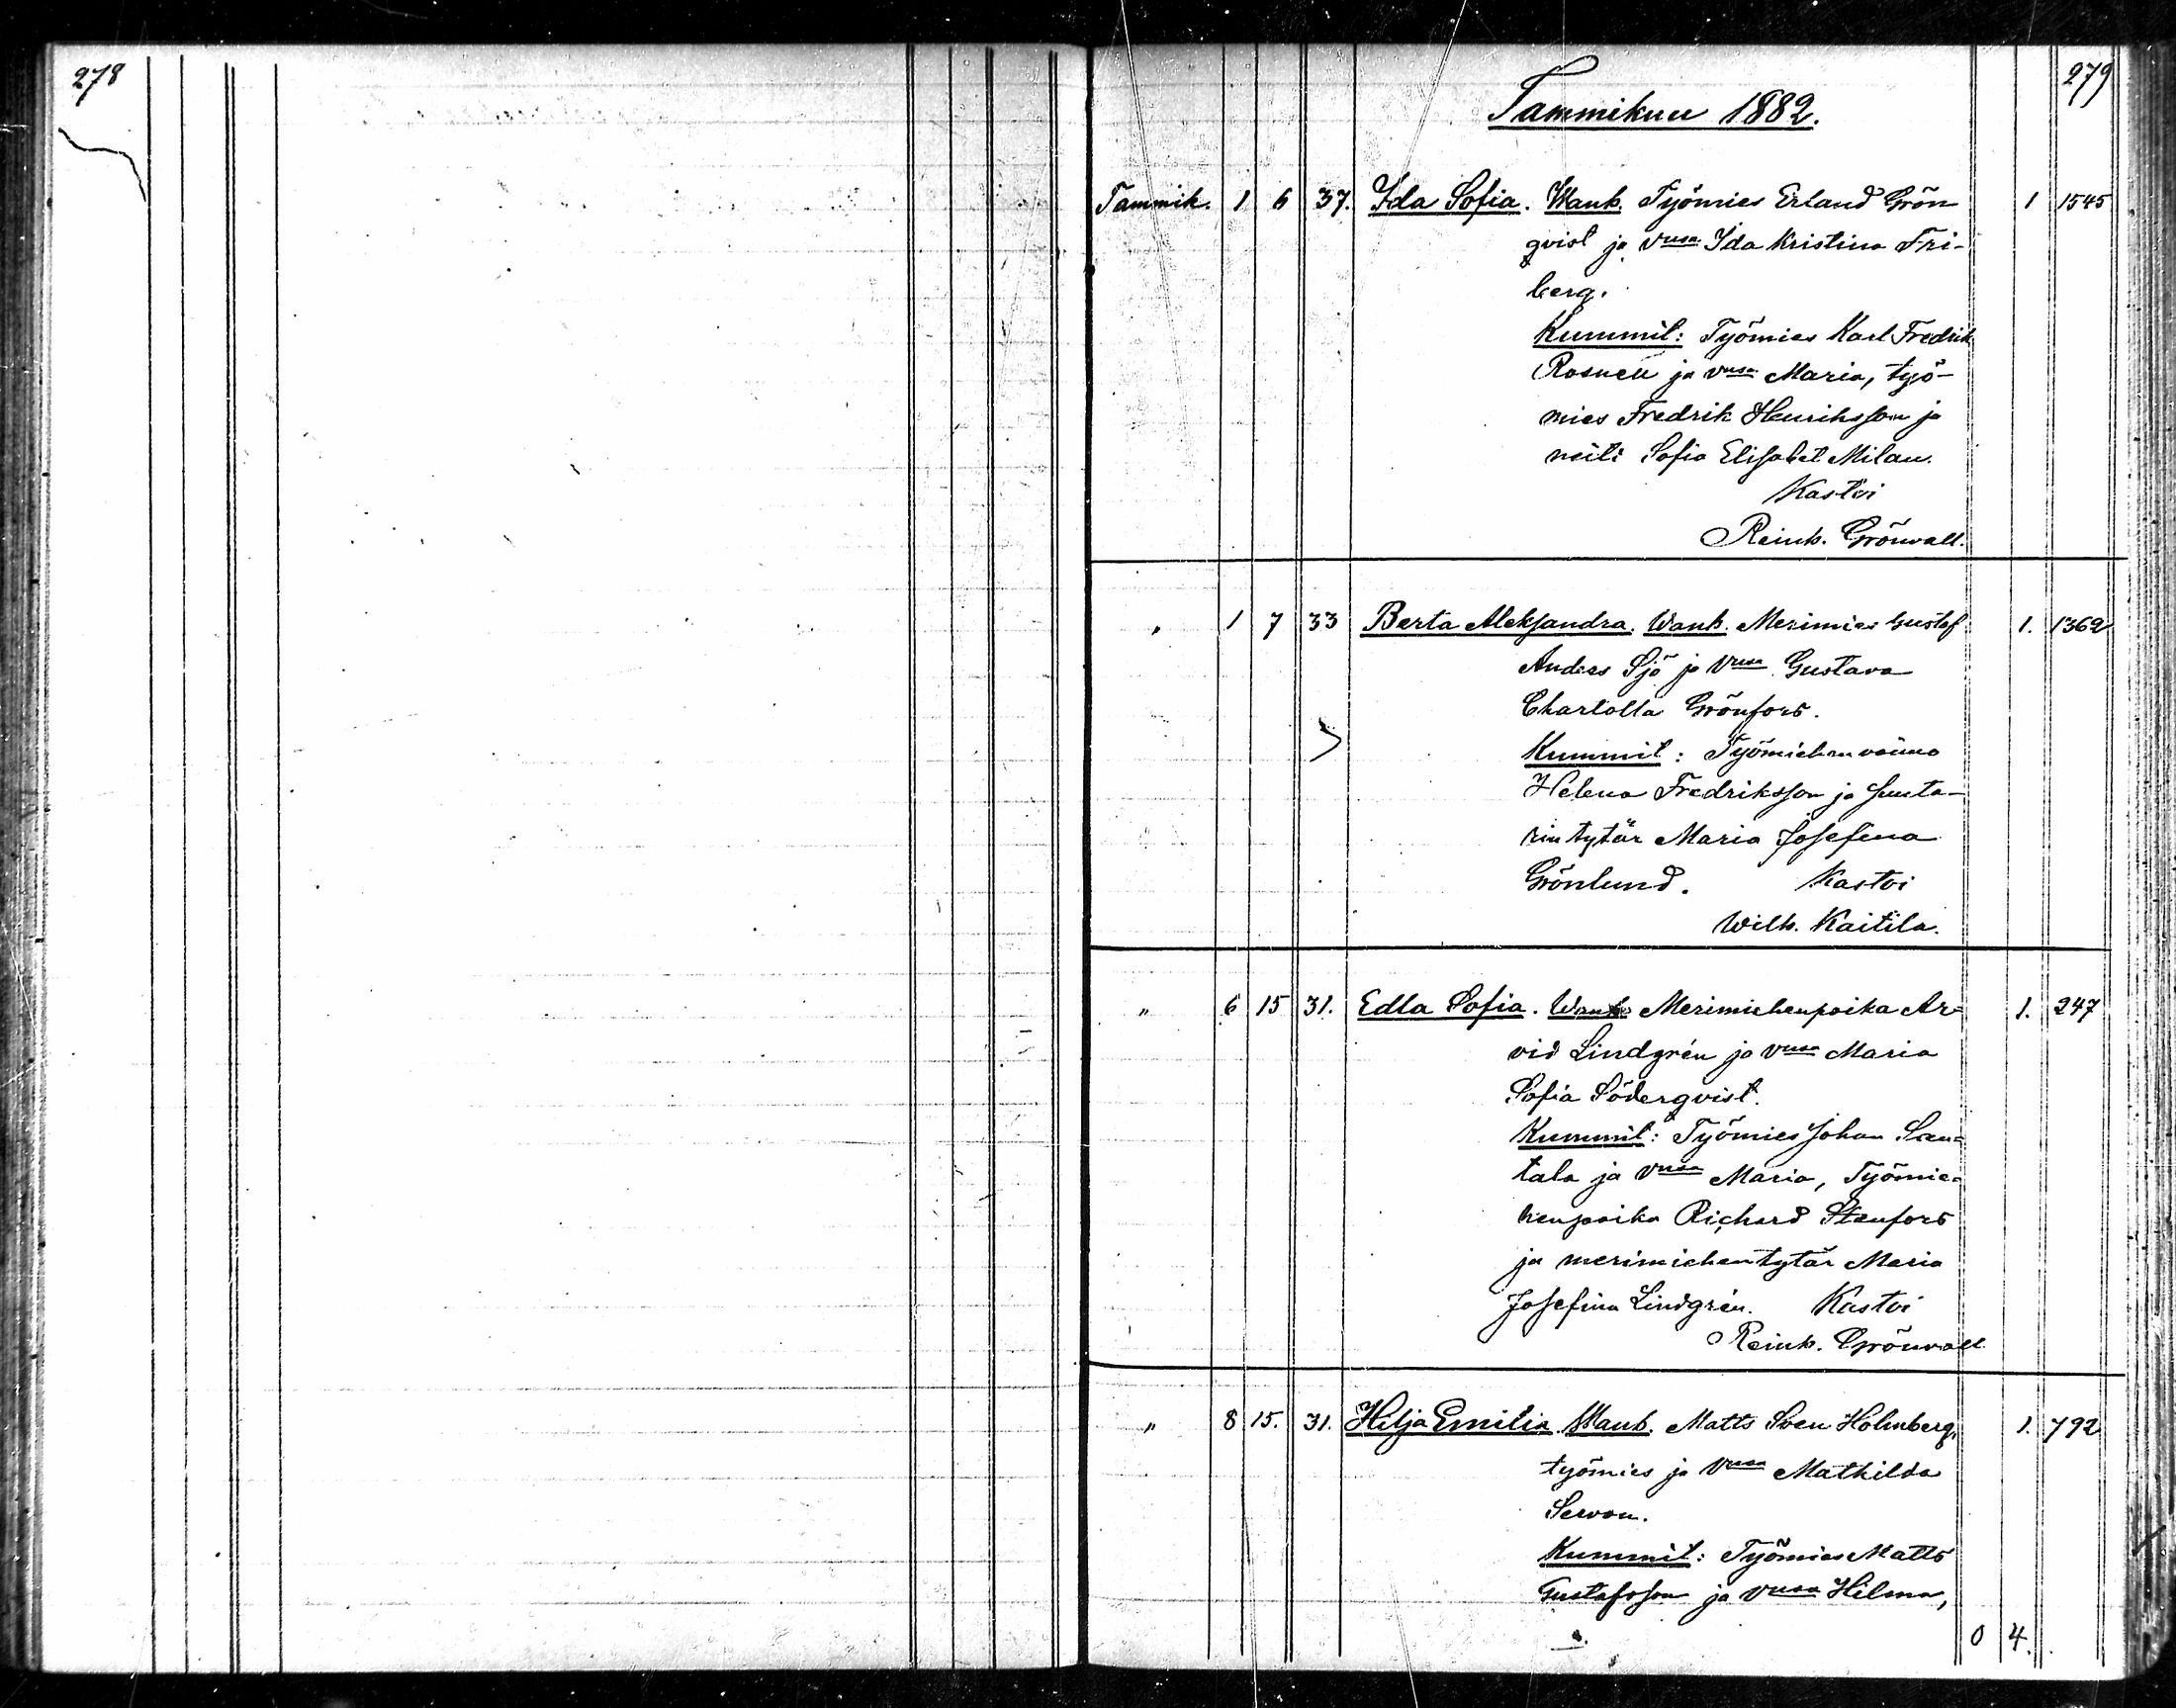 278
279
Tammikuu 1882.
Tammik. 1 6 37. Ida Sofia. Wanh. Työmies Erland Grön 1 1545
qvist ja vnsa Ida Kristina Fri-
berg.
Kummit: Työmies Karl Fredrik
ja vnsa Maria, työ-
mies Fredrik Henriksson ja
neiti Sofia Elisabet Milan.
Kastoi
Reinh. Grönvall.
" 1 7 33 Berta Aleksandra. Wanh. Merimies Gustaf 1. 1362
Anders Sjö ja vnsa Gustava
Charlotta Grönfors.
Kummit: Työmiehen vaimo
Helena Fredriksson ja suuta-
rin tytär Maria Josefina
Grönlund. Kastoi
Wilh. Kaitila.
" 6 15 31. Edla Sofia. Wanh. Merimiehenpoika Ar= 1. 247
vid Lindgrén ja vnsa Maria
Sofia Söderqvist.
Kummit: Työmies Johan San=
tala ja vnsa Maria, Työmie=
henpoika Richard Stenfors
ja merimiehentytär Maria
Josefina Lindgrén. Kastoi
Reinh. Grönvall
" 8 15. 31. Hilja Emilia. Wanh. Matts Sven Holmberg, 1. 792
työmies ja vnsa Mathilda
Servon.
Kummit: Työmies Matts
Gustafsson ja vnsa Hilma,
0 4.